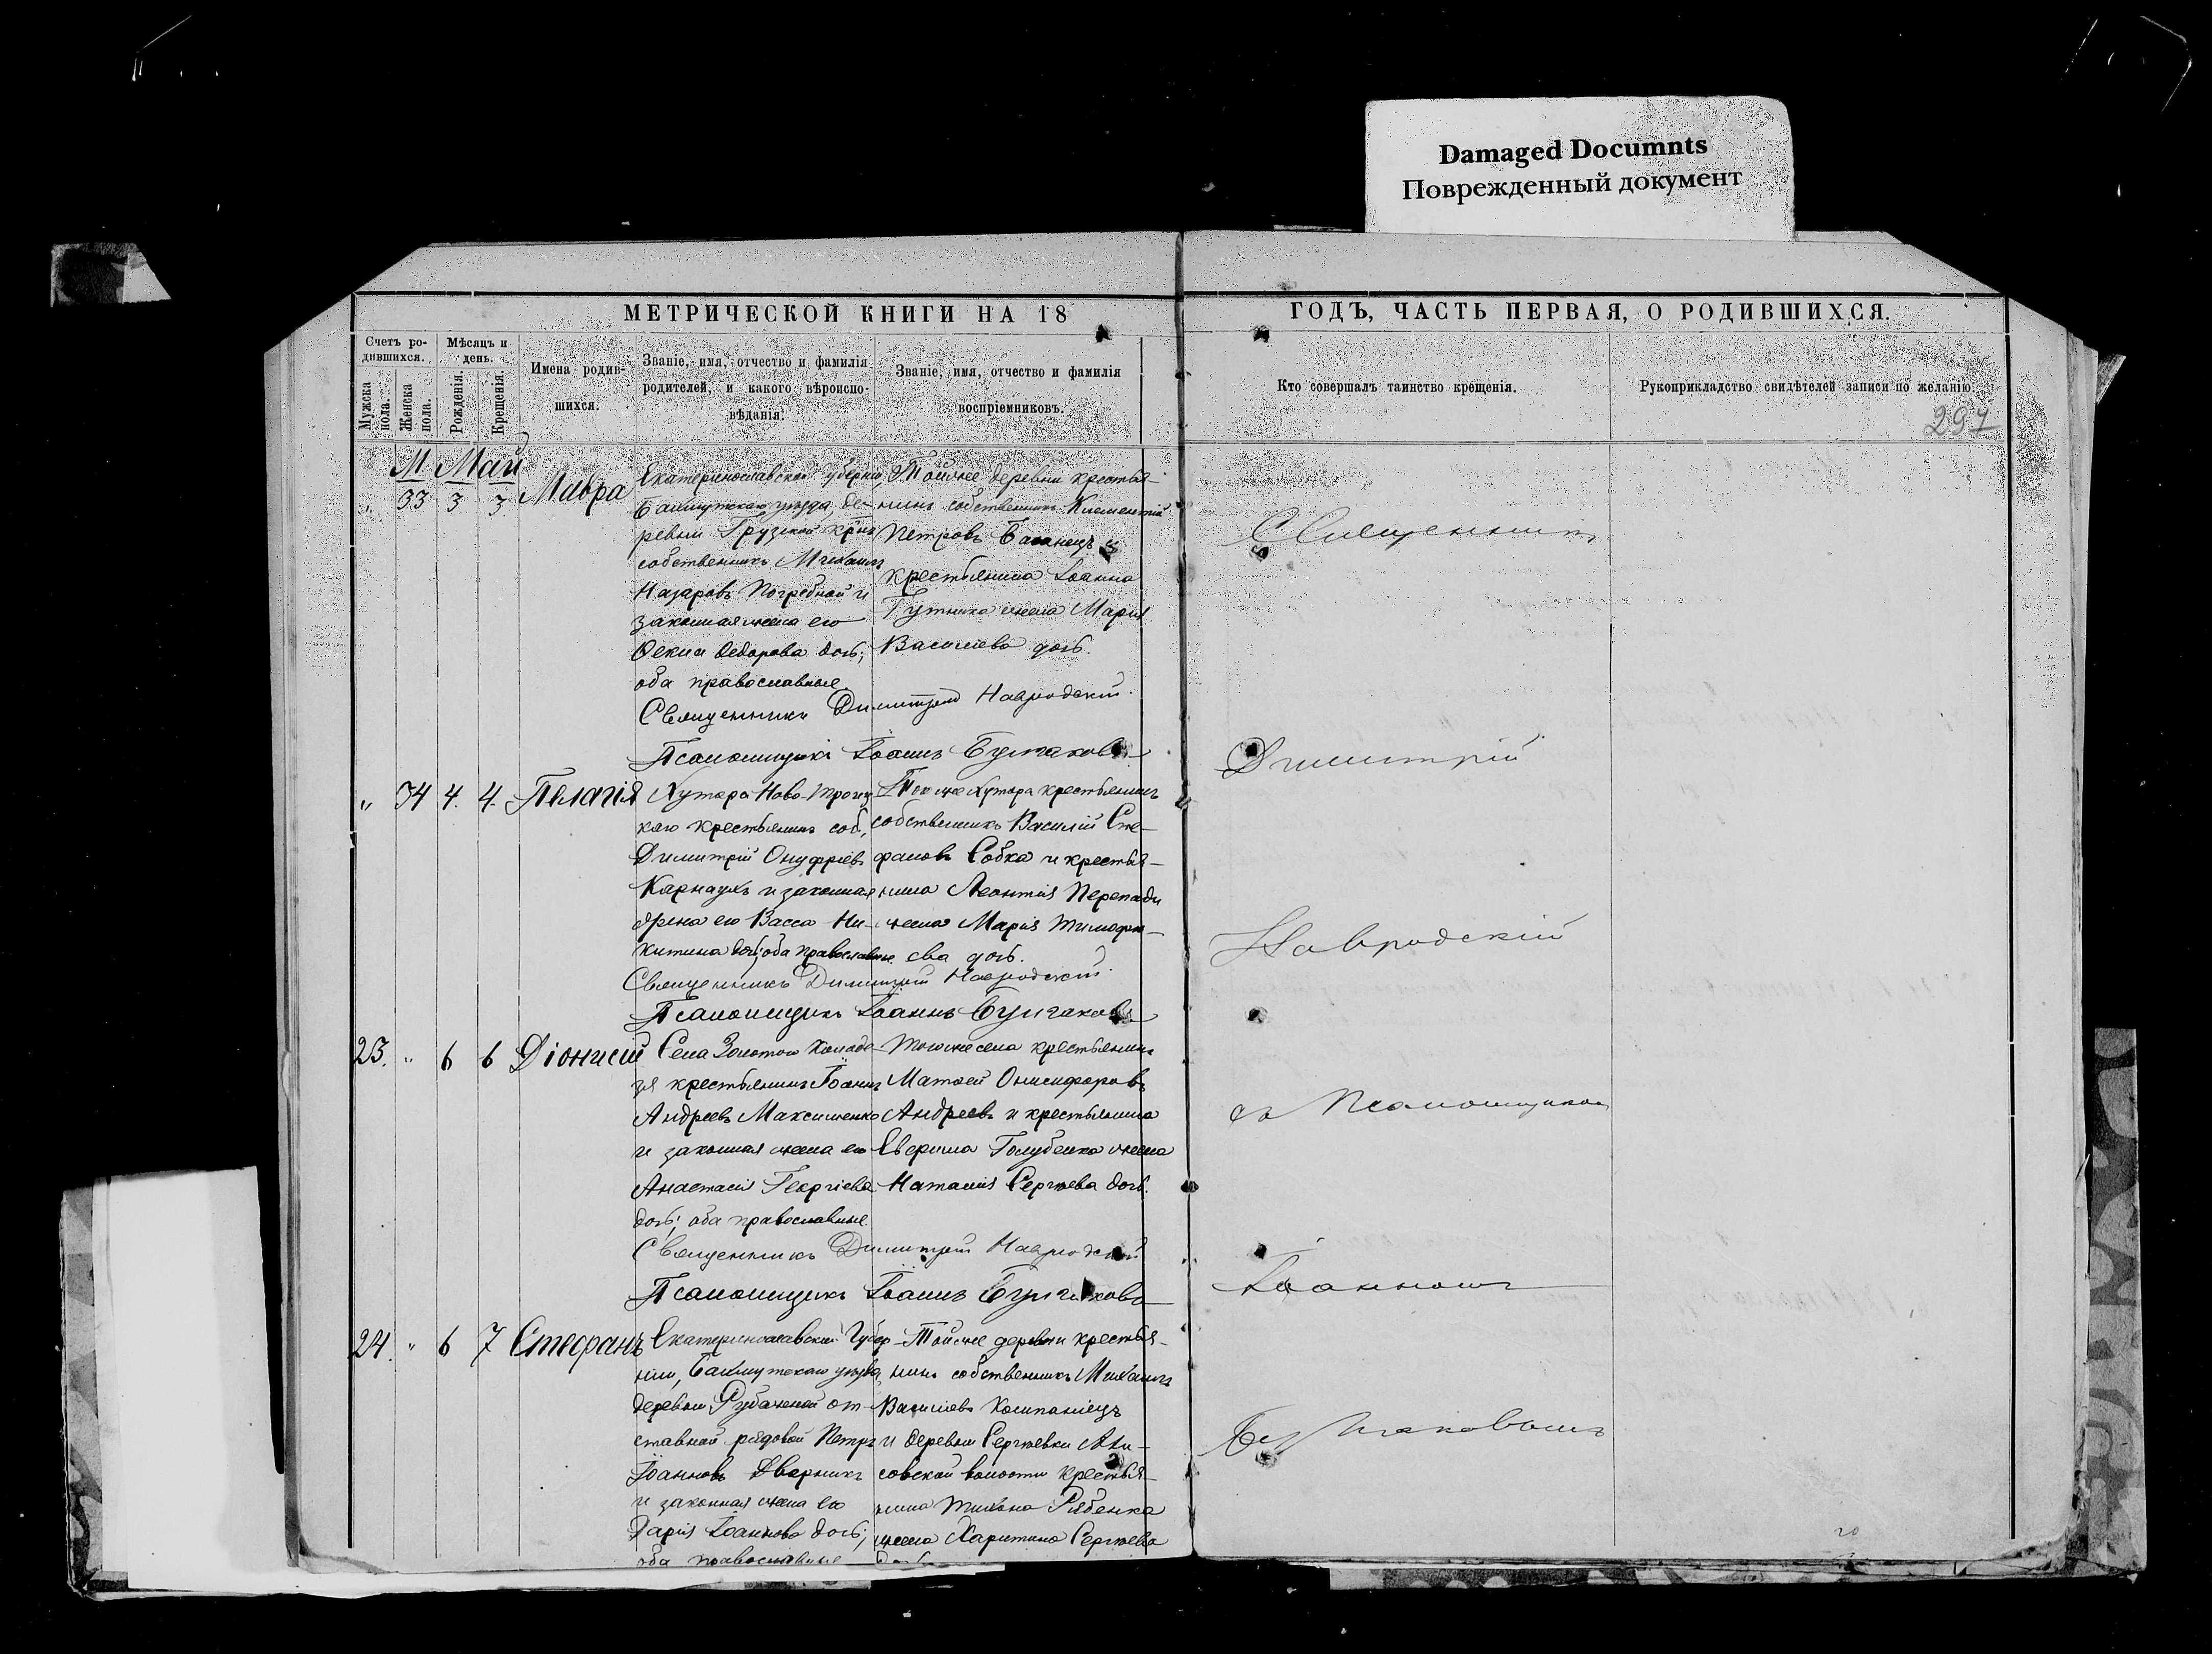 Damaged Documnts
Поврежденный документ
МЕТРИЧЕСКОЙ КНИГИ НА 18
ГОДЪ, ЧАСТЬ ПЕРВАЯ, О РОДИВШИХСЯ.
Счетъ ро-
дившихся.
Мужска
пола.
Женска
пола.
Мѣсяцъ и
день.
Рожденія.
Крещенія.
Имена родив-
шихся.
Званіе, имя, отчество и фамилія
родителей, и какого вѣроиспо-
вѣданія.
Званіе, имя, отчество и фамилія
воспріемниковъ.
Кто совершалъ таинство крещенія.
Рукоприкладство свидѣтелей записи по желанію.
297
М Май
„ 33 3 3 Мавра
Екатеринославской губерніи,
Бахмутскаго уѣзда, де-
ревни Грузской кр-нъ
собственникъ Михаилъ
Назаровъ Погребной и
законная жена его
Ѳекла Ѳедорова дочь;
оба православные
Тойже деревни крестья-
нинъ собственникъ Климентій
Петровъ и
крестьянина Іоанна
Гутника жена Марія
Васильева дочь.
Священникъ Димитрій Навродскій.
Псаломщикъ Іоаннъ Булгаковъ
„ 34 4. 4. Пелагія
Хутора Ново-Троиц
каго крестьянинъ соб.,
Димитрій Онуфріевъ
Карнаухъ и законная
жена его Васса Ни-
китина дочь; оба православные.
Того же хутора крестьянинъ
собственникъ Василій Сте-
фановъ Собка и крестья-
нина Леонтія Перепади
жена Марія Тимофе-
ева дочь.
Священникъ Димитрій Навродскій.
Псаломщикъ Іоаннъ Булгаковъ
23. „ 6 6 Діонисій
Села Золотого Колодe-
зя крестьянинъ Іоаннъ
Андреевъ Максименко
и законная жена его
Анастасія Георгіева
дочь; оба православные.
Того же села крестьянинъ
Матѳей Онисифоровъ
Андреевъ и крестьянина
Северина Голубенка жена
Наталія Сергѣева дочь.
Священникъ Димитрій Навродскій
Псаломщикъ Іоаннъ Булгаковъ
24. „ 6 7 Стефанъ
Екатеринославской Губер
ніи, Бахмутскаго уѣзда,
деревни Рубажной от-
ставной рядовой Петръ
Іоанновъ Дверникъ
и законная жена его
Дарія Іоаннова дочь;
оба православные
Тойже деревни крестья-
нинъ собственникъ Михаилъ
Васильевъ Компаніецъ
и деревни Сергѣевки
совской волости крестья-
нина Тихона Рябенка
жена Харитина Сергѣева
дочь
Священникъ
Димитрій
Навродскій
съ Псаломщикомъ
Іоанномъ
Булгаковымъ